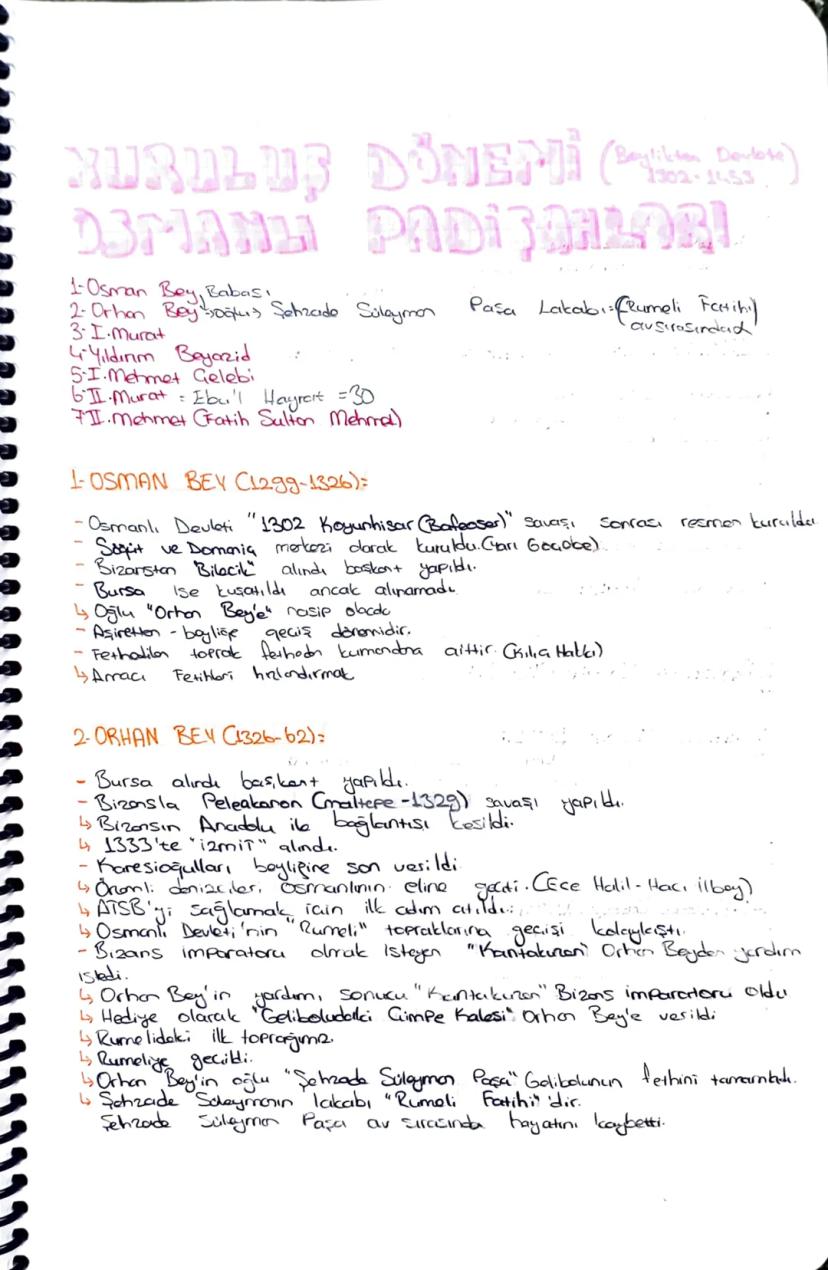 KURULUŞ DÖNEMİ (Beylikten Devlete)
1302-1453
OSMANLI PADİŞAHLARI
1-Osman Bey, Babası
2-Orhan Bey → oğlu → Şehzade Süleyman Paşa Lakabı: (Rumeli Fatihi)
av sırasında öldü
3-I. Murat
4-Yıldırım Beyazid
5-I. Mehmet Çelebi
6-II. Murat = Ebu'l Hayrat = 30
7-II. Mehmet (Fatih Sultan Mehmet)
1-OSMAN BEY (1299-1326)=
- Osmanlı Devleti "1302 Koyunhisar (Bafeaser)" savaşı sonrası resmen kuruldu
- Söğüt ve Domaniç merkezi olarak kuruldu. (Yarı Göçebe)
- Bizanstan "Bilecik" alındı başkent yapıldı.
- Bursa ise kuşatıldı ancak alınamadı.
↳ Oğlu "Orhan Bey'e" nasip olacak
- Aşiretten - beyliğe geçiş dönemidir.
- Fethedilen toprak fetheden kumandana aittir. (Kılıç Hakkı)
↳ Amacı Fetihleri hızlandırmak
2-ORHAN BEY (1326-62)=
- Bursa alındı başkent yapıldı.
- Bizansla Peleakanon (maltepe-1329) savaşı yapıldı.
↳ Bizansın Anadolu ile bağlantısı kesildi.
↳ 1333'te "izmit" alındı.
- Karesioğulları beyliğine son verildi
↳ Önemli denizciler, Osmanlının eline geçti. (Ece Halil - Hacı ilbey)
↳ ATSB'yi sağlamak için ilk adım atıldı.
↳ Osmanlı Devleti'nin "Rumeli" topraklarına geçişi kolaylaştı.
- Bizans imparatoru olmak isteyen "Kantakuzen" Orhan Beyden yardım
istedi.
↳ Orhan Bey'in yardımı sonucu "Kantakuzen" Bizans imparatoru oldu
↳ Hediye olarak "Geliboludaki Çimpe Kalesi" Orhan Bey'e verildi
↳ Rumelideki ilk toprağımız.
↳ Rumeliye geçildi.
↳ Orhan Bey'in oğlu "Şehzade Süleyman Paşa" Gelibolunun fethini tamamladı.
↳ Şehzade Süleymanın lakabı "Rumeli Fatihi" 'dir.
Şehzade Süleyman Paşa av sırasında hayatını kaybetti.